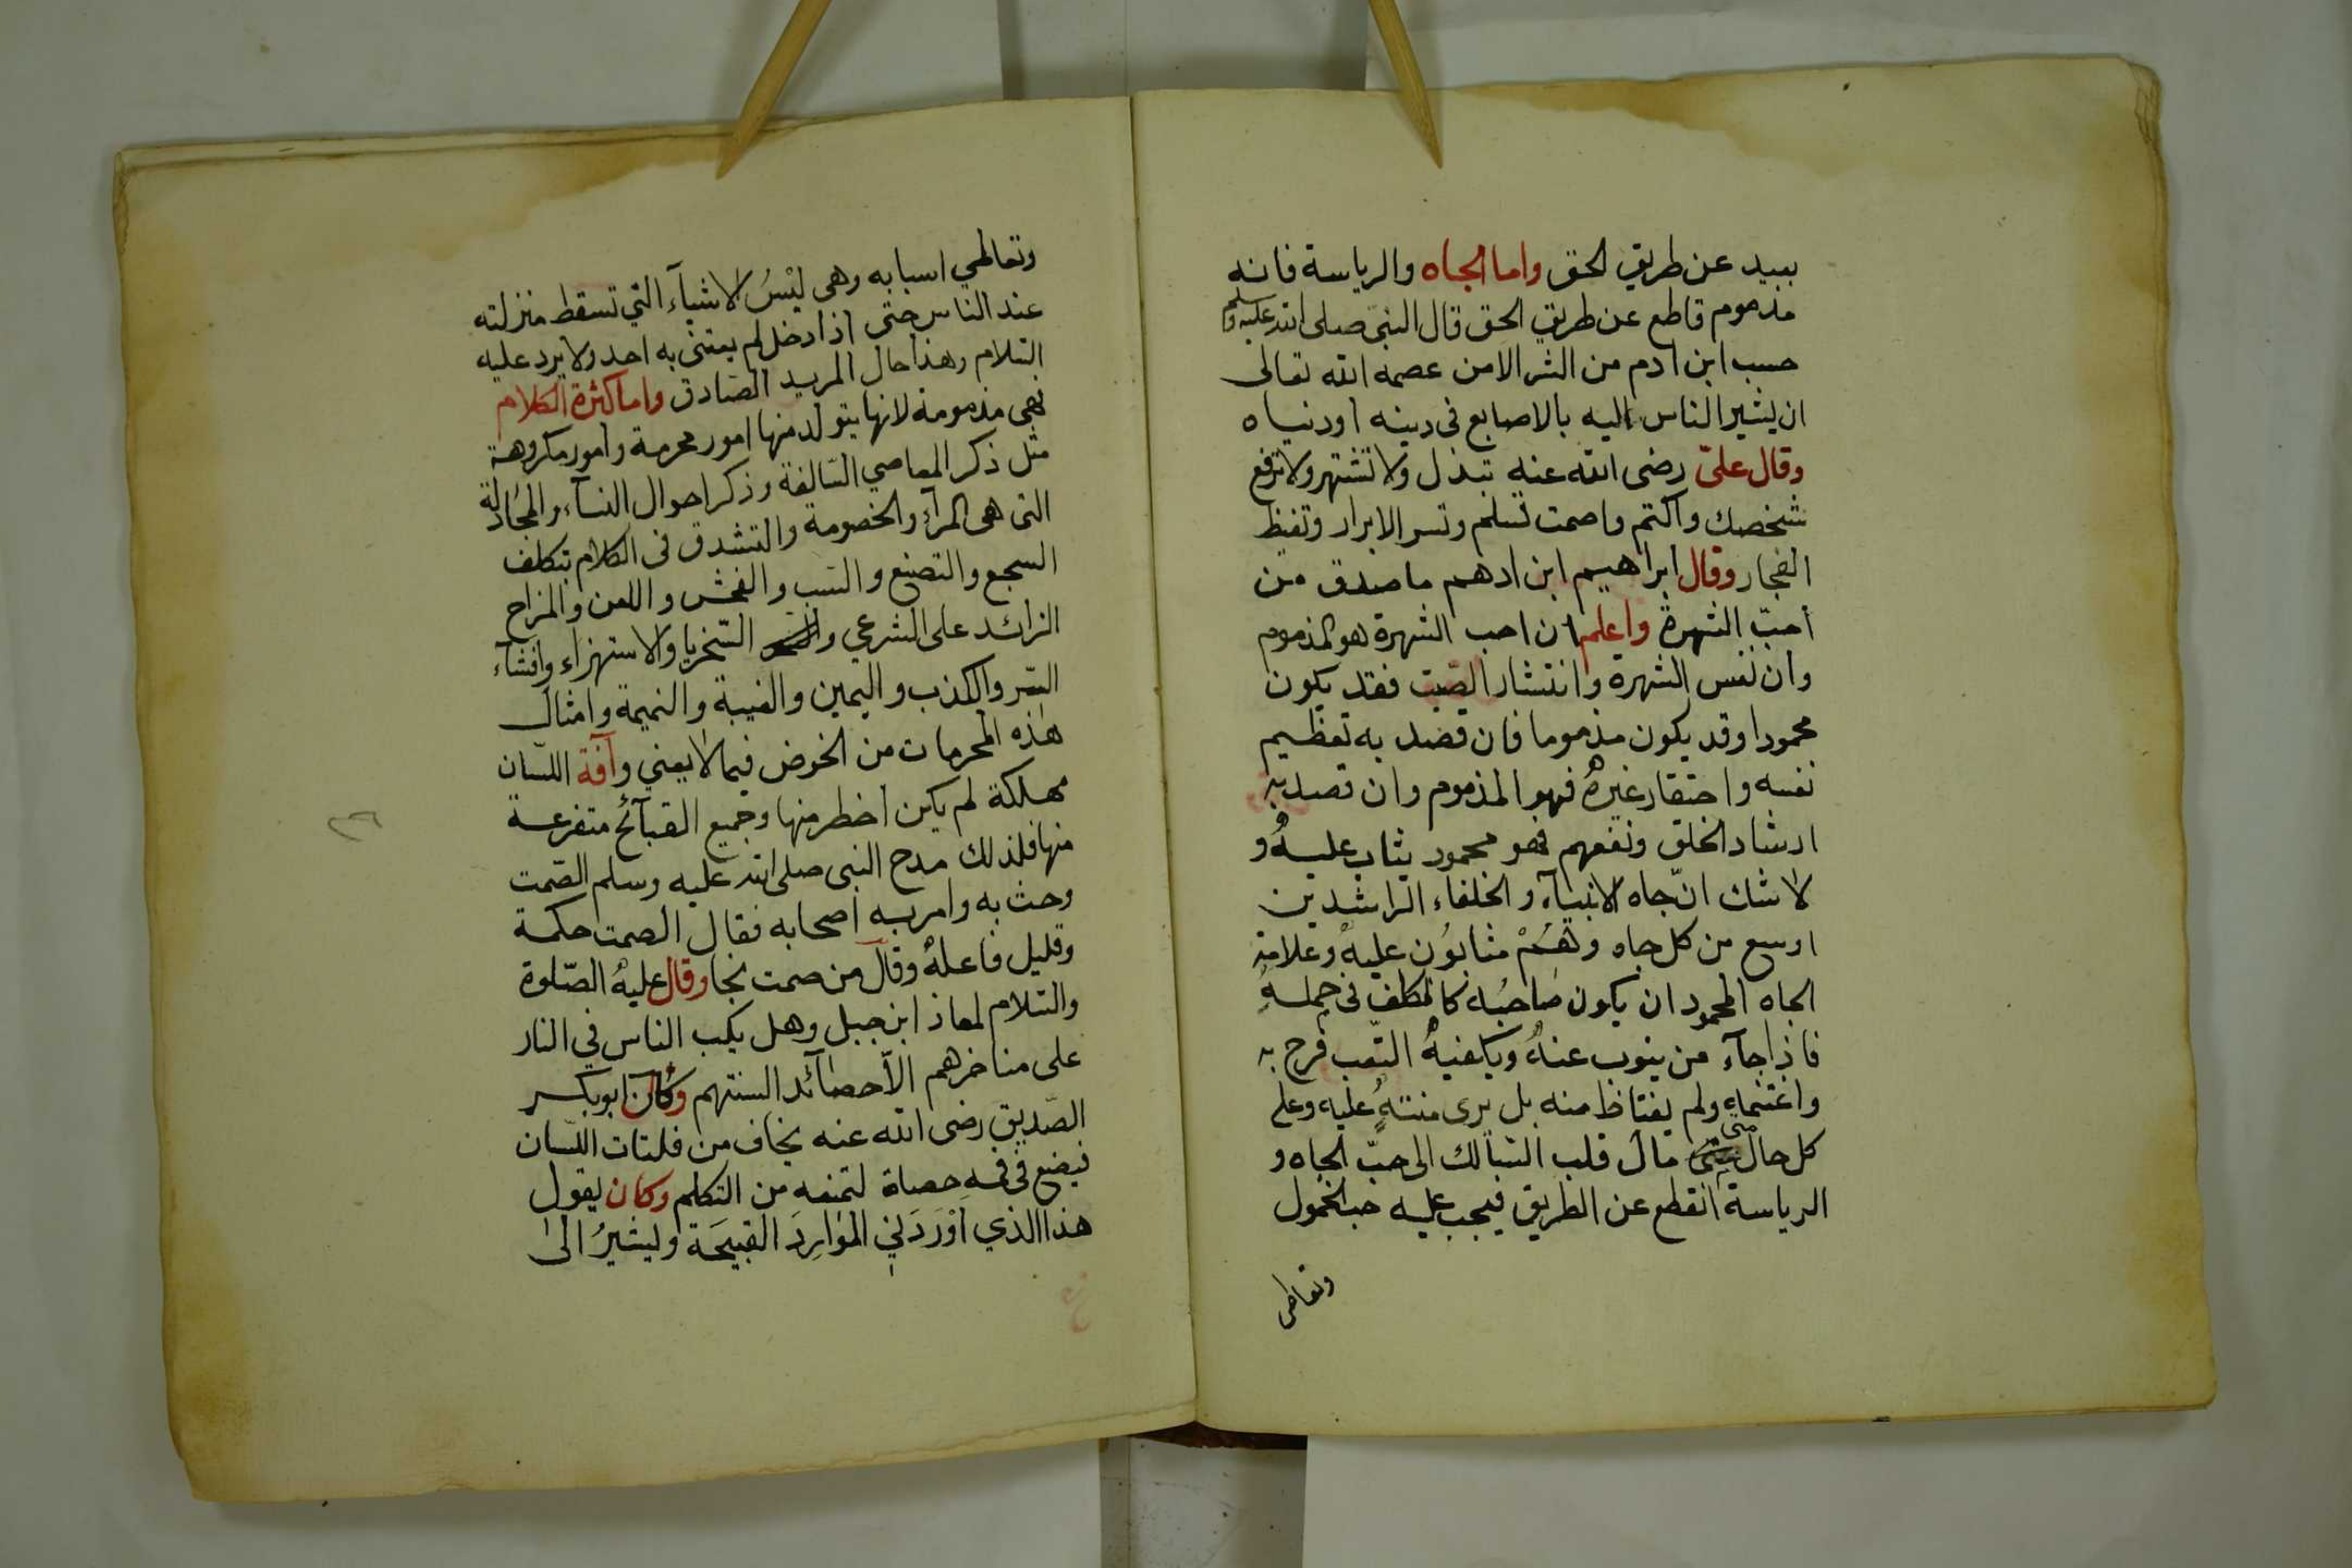 بعيد عن طريق الحق واما الجاه والرياسة فانه
مذموم قاطع عن طريق الحق قال النبي صلى الله عليه وسلم
حسب ابن ادم من الشر الا من عصمه الله تعالى
ان يشير الناس اليه بالاصابع في دينه او دنياه
وقال عليّ رضى الله عنه تبذل ولا تشتهر ولا ترفع
شخصك واكتم واصمت تسلم وتسر الابرار وتغيظ
الفجار وقال ابراهيم ابن ادهم ما صدق من
احبّ الشهرة واعلم ان احب الشهرة هو المذموم
وان نفس الشهرة وانتشار الصيت فقد يكون
محمودا وقد يكون مذموما فان قصد به تعظيم
نفسه واحتقار غيره فهو المذموم وان قصد به
ارشاد الخلق ونفعهم فهو محمود يثاب عليه و
لا شك انّ جاه الانبيآء والخلفاء الراشدين
اوسع من كل جاه وهم مثابون عليه وعلامة
الجاه المحمود ان يكون صاحبه كالمكلف في حمله
فاذا جآء من ينوب عنه ويكفيه التّعب فرح به
واغتنمه ولم يغتاظ منه بل يرى منته عليه وعلى
كل حال متى مال قلب السّالك الى حبّ الجاه و
الرياسة انقطع عن الطريق فيجب عليه حب الخمول
وتعاطى
وتعاطي اسبابه وهى لبْسُ الاشيآء التي تسقط منزلته
عند الناس حتى اذا دخل لم يعتنى به احد ولا يرد عليه
السّلام وهذا حال المريد الصّادق واما كثرة الكلام
فهى مذمومة لانها يتولد منها امور محرمة وامور مكروهة
مثل ذكر المعاصي السّالفة وذكر احوال النسآء والمجادلة
التى هى المرآء والخصومة والتشدق فى الكلام بتكلف
السجع والتصنع والسّب والفحش واللعن والمزاح
الزائد على الشرعي والسّخريا والاستهزاء وافشآء
السّر والكذب واليمين والغيبة والنميمة وامثال
هٰذه المحرمات من الخوض فيما لا يعني وآفة اللّسان
مهلكة لم يكن اخطر منها وجميع القبآئح متفرعة
منها فلذلك مدح النبى صلى الله عليه وسلم الصّمت
وحث به وامر به اصحابه فقال الصمت حكمة
وقليل فاعله وقال من صمت نجا وقال عليه الصّلوة
والسّلام لمعاذ ابن جبل وهل يكب الناس في النار
على مناخرهم الاّ حصآئد السنتهم وكان ابو بكر
الصّديق رضى الله عنه يخاف من فلتات اللّسان
فيضع في فمهِ حصاة لتمنعه من التكلم وكان يقول
هذا الذي اَوْرَدَنيِ المَوَارِدَ القبيحَة ويشيرُ الىٰ
٢٦